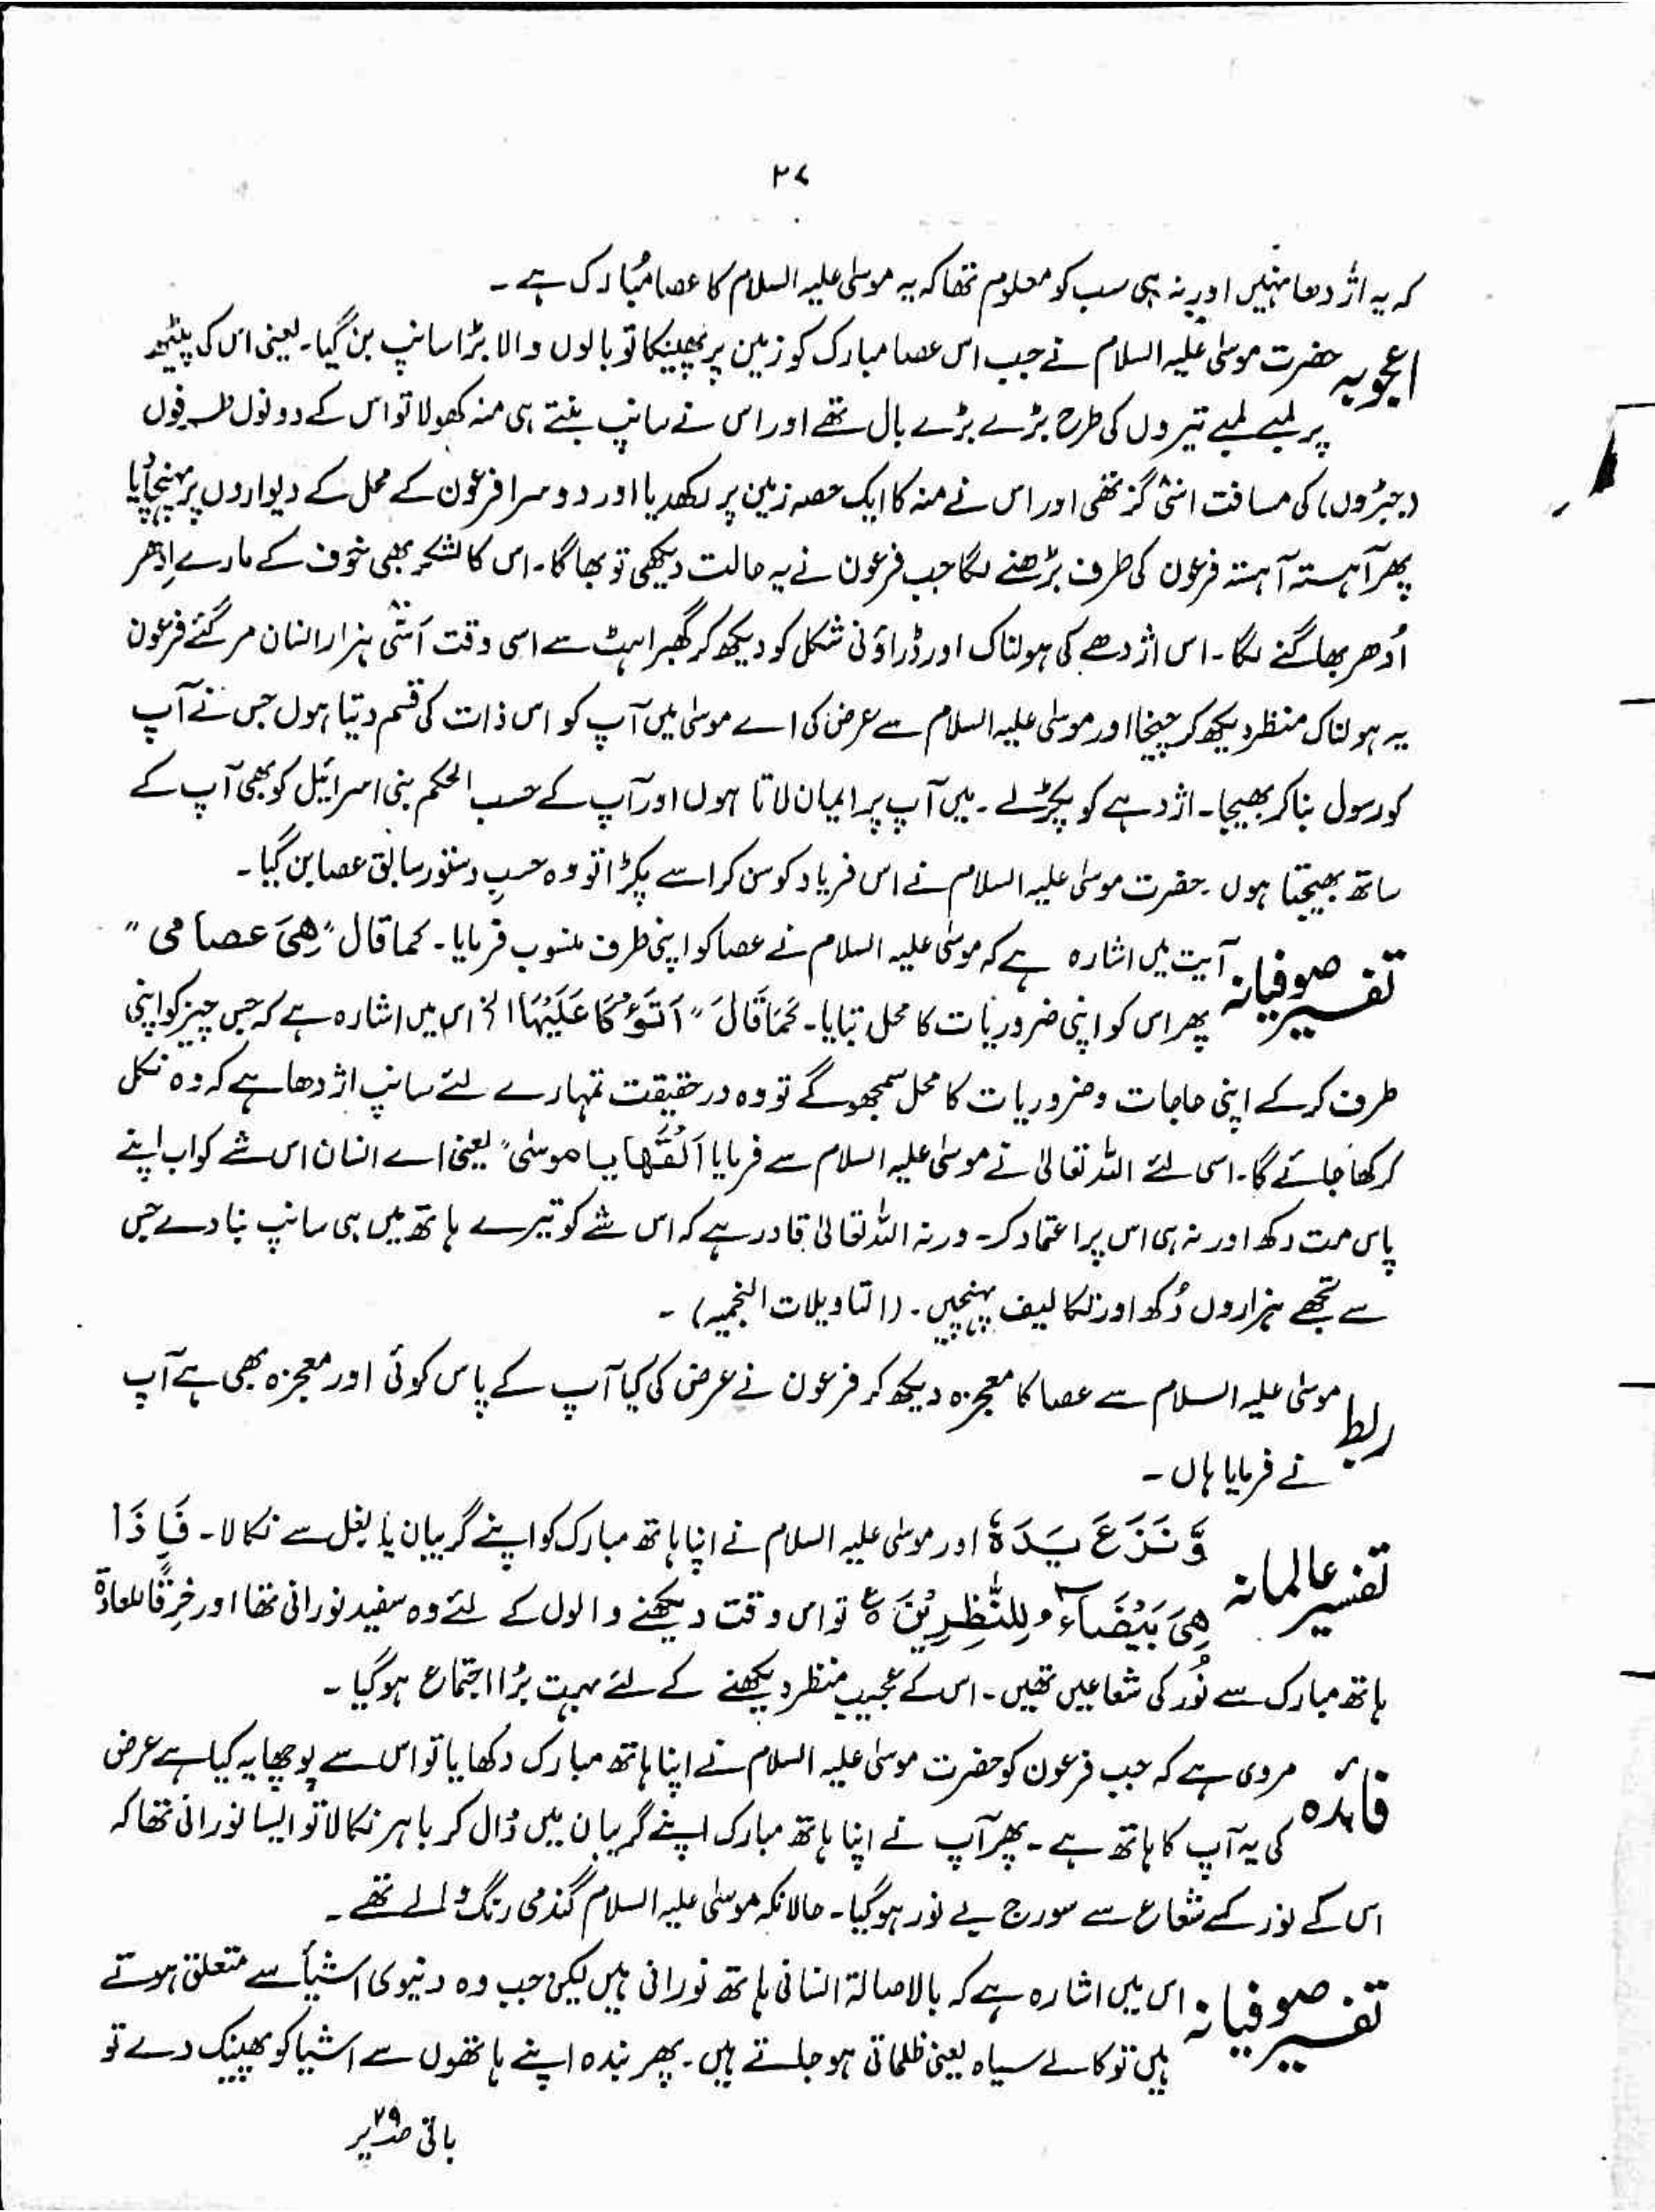 ۲۷
کہ یہ اژدھا نہیں اور نہ ہی سب کو معلوم تھا کہ یہ موسیٰ علیہ السلام کا عصا مُبارک ہے ۔
اعجوبہ حضرت موسیٰ علیہ السلام نے جب اس عصا مبارک کو زمین پر پھینکا تو بالوں والا بڑا سانپ بن گیا۔ یعنی اس کی پیٹھ
پر لمبے لمبے تیروں کی طرح بڑے بڑے بال تھے اور اس نے سانپ بنتے ہی منہ کھولا تو اس کے دونوں طرفوں
(جبڑوں) کی مسافت اسّی گز تھی اور اس نے منہ کا ایک حصہ زمین پر رکھدیا اور دوسرا فرعون کے محل کے دیواروں پر پہنچایا
پھر آہستہ آہستہ فرعون کی طرف بڑھنے لگا جب فرعون نے یہ حالت دیکھی تو بھاگا۔ اس کا لشکر بھی خوف کے مارے اِدھر
اُدھر بھاگنے لگا۔ اس اژدھے کی ہولناک اور ڈراؤنی شکل کو دیکھ کر گھبراہٹ سے اسی وقت اَسّی ہزار انسان مر گئے فرعون
یہ ہولناک منظر دیکھ کر چیخا اور موسیٰ علیہ السلام سے عرض کی اے موسیٰ میں آپ کو اس ذات کی قسم دیتا ہوں جس نے آپ
کو رسول بنا کر بھیجا۔ اژدہے کو پکڑلے ۔ میں آپ پر ایمان لاتا ہوں اور آپ کے حسب الحکم بنی اسرائیل کو بھی آپ کے
ساتھ بھیجتا ہوں ۔ حضرت موسیٰ علیہ السلام نے اس فریاد کو سن کر اسے پکڑا تو وہ حسبِ دستور سابق عصا بن گیا ۔
تفسیر صوفیانہ آیت میں اشارہ ہے کہ موسیٰ علیہ السلام نے عصا کو اپنی طرف منسوب فرمایا۔ کما قال "ھِیَ عصامی"
پھر اس کو اپنی ضروریات کا محل بتایا۔ کَمَا قَالَ "اَتَوَؤُکَا عَلَیْہَا الخ اس میں اشارہ ہے کہ جس چیز کو اپنی
طرف کرکے اپنی حاجات و ضروریات کا محل سمجھوگے تو وہ درحقیقت تمہارے لئے سانپ اژدھا ہے کہ وہ نگل
کر کھا جائے گا۔ اسی لئے اللہ تعالیٰ نے موسیٰ علیہ السلام سے فرمایا اَلْقِهَا یا موسیٰ" یعنی اے انسان اس شے کو اب اپنے
پاس مت رکھ اور نہ ہی اس پر اعتماد کر۔ ورنہ اللہ تعالیٰ قادر ہے کہ اس شے کو تیرے ہاتھ میں ہی سانپ بنادے جس
سے تجھے ہزاروں دُکھ اور تکالیف پہنچیں ۔ (التاویلات النجمیہ) ۔
ربط موسیٰ علیہ السلام سے عصا کا معجزہ دیکھ کر فرعون نے عرض کی کیا آپ کے پاس کوئی اور معجزہ بھی ہے آپ
نے فرمایا ہاں ۔
تفسیر عالمانہ وَّنَزَعَ یَدَہٗ اور موسیٰ علیہ السلام نے اپنا ہاتھ مبارک کو اپنے گریبان یا بغل سے نکالا۔ فَاِذَا
ھِیَ بَیْضَآءُ لِلنّٰظِرِیْنَ ہ تو اس وقت دیکھنے والوں کے لئے وہ سفید نورانی تھا اور خرقًا للعادۃ
ہاتھ مبارک سے نُور کی شعاعیں تھیں ۔ اس کے عجیب منظر دیکھنے کے لئے بہت بڑا اجتماع ہوگیا ۔
فائدہ مروی ہے کہ جب فرعون کو حضرت موسیٰ علیہ السلام نے اپنا ہاتھ مبارک دکھایا تو اس سے پوچھا یہ کیا ہے عرض
کی یہ آپ کا ہاتھ ہے ۔ پھر آپ نے اپنا ہاتھ مبارک اپنے گریبان میں ڈال کر باہر نکالا تو ایسا نورانی تھا کہ
اس کے نور کے شعاع سے سورج بے نور ہوگیا۔ حالانکہ موسیٰ علیہ السلام گندمی رنگ والے تھے ۔
تفسیر صوفیانہ اس میں اشارہ ہے کہ بالاصالۃ انسانی ہاتھ نورانی ہیں لیکن جب وہ دنیوی اشیأ سے متعلق ہوتے
ہیں تو کالے سیاہ یعنی ظلماتی ہو جاتے ہیں۔ پھر بندہ اپنے ہاتھوں سے اشیا کو پھینک دے تو
باقی صـ ۲۹ پر